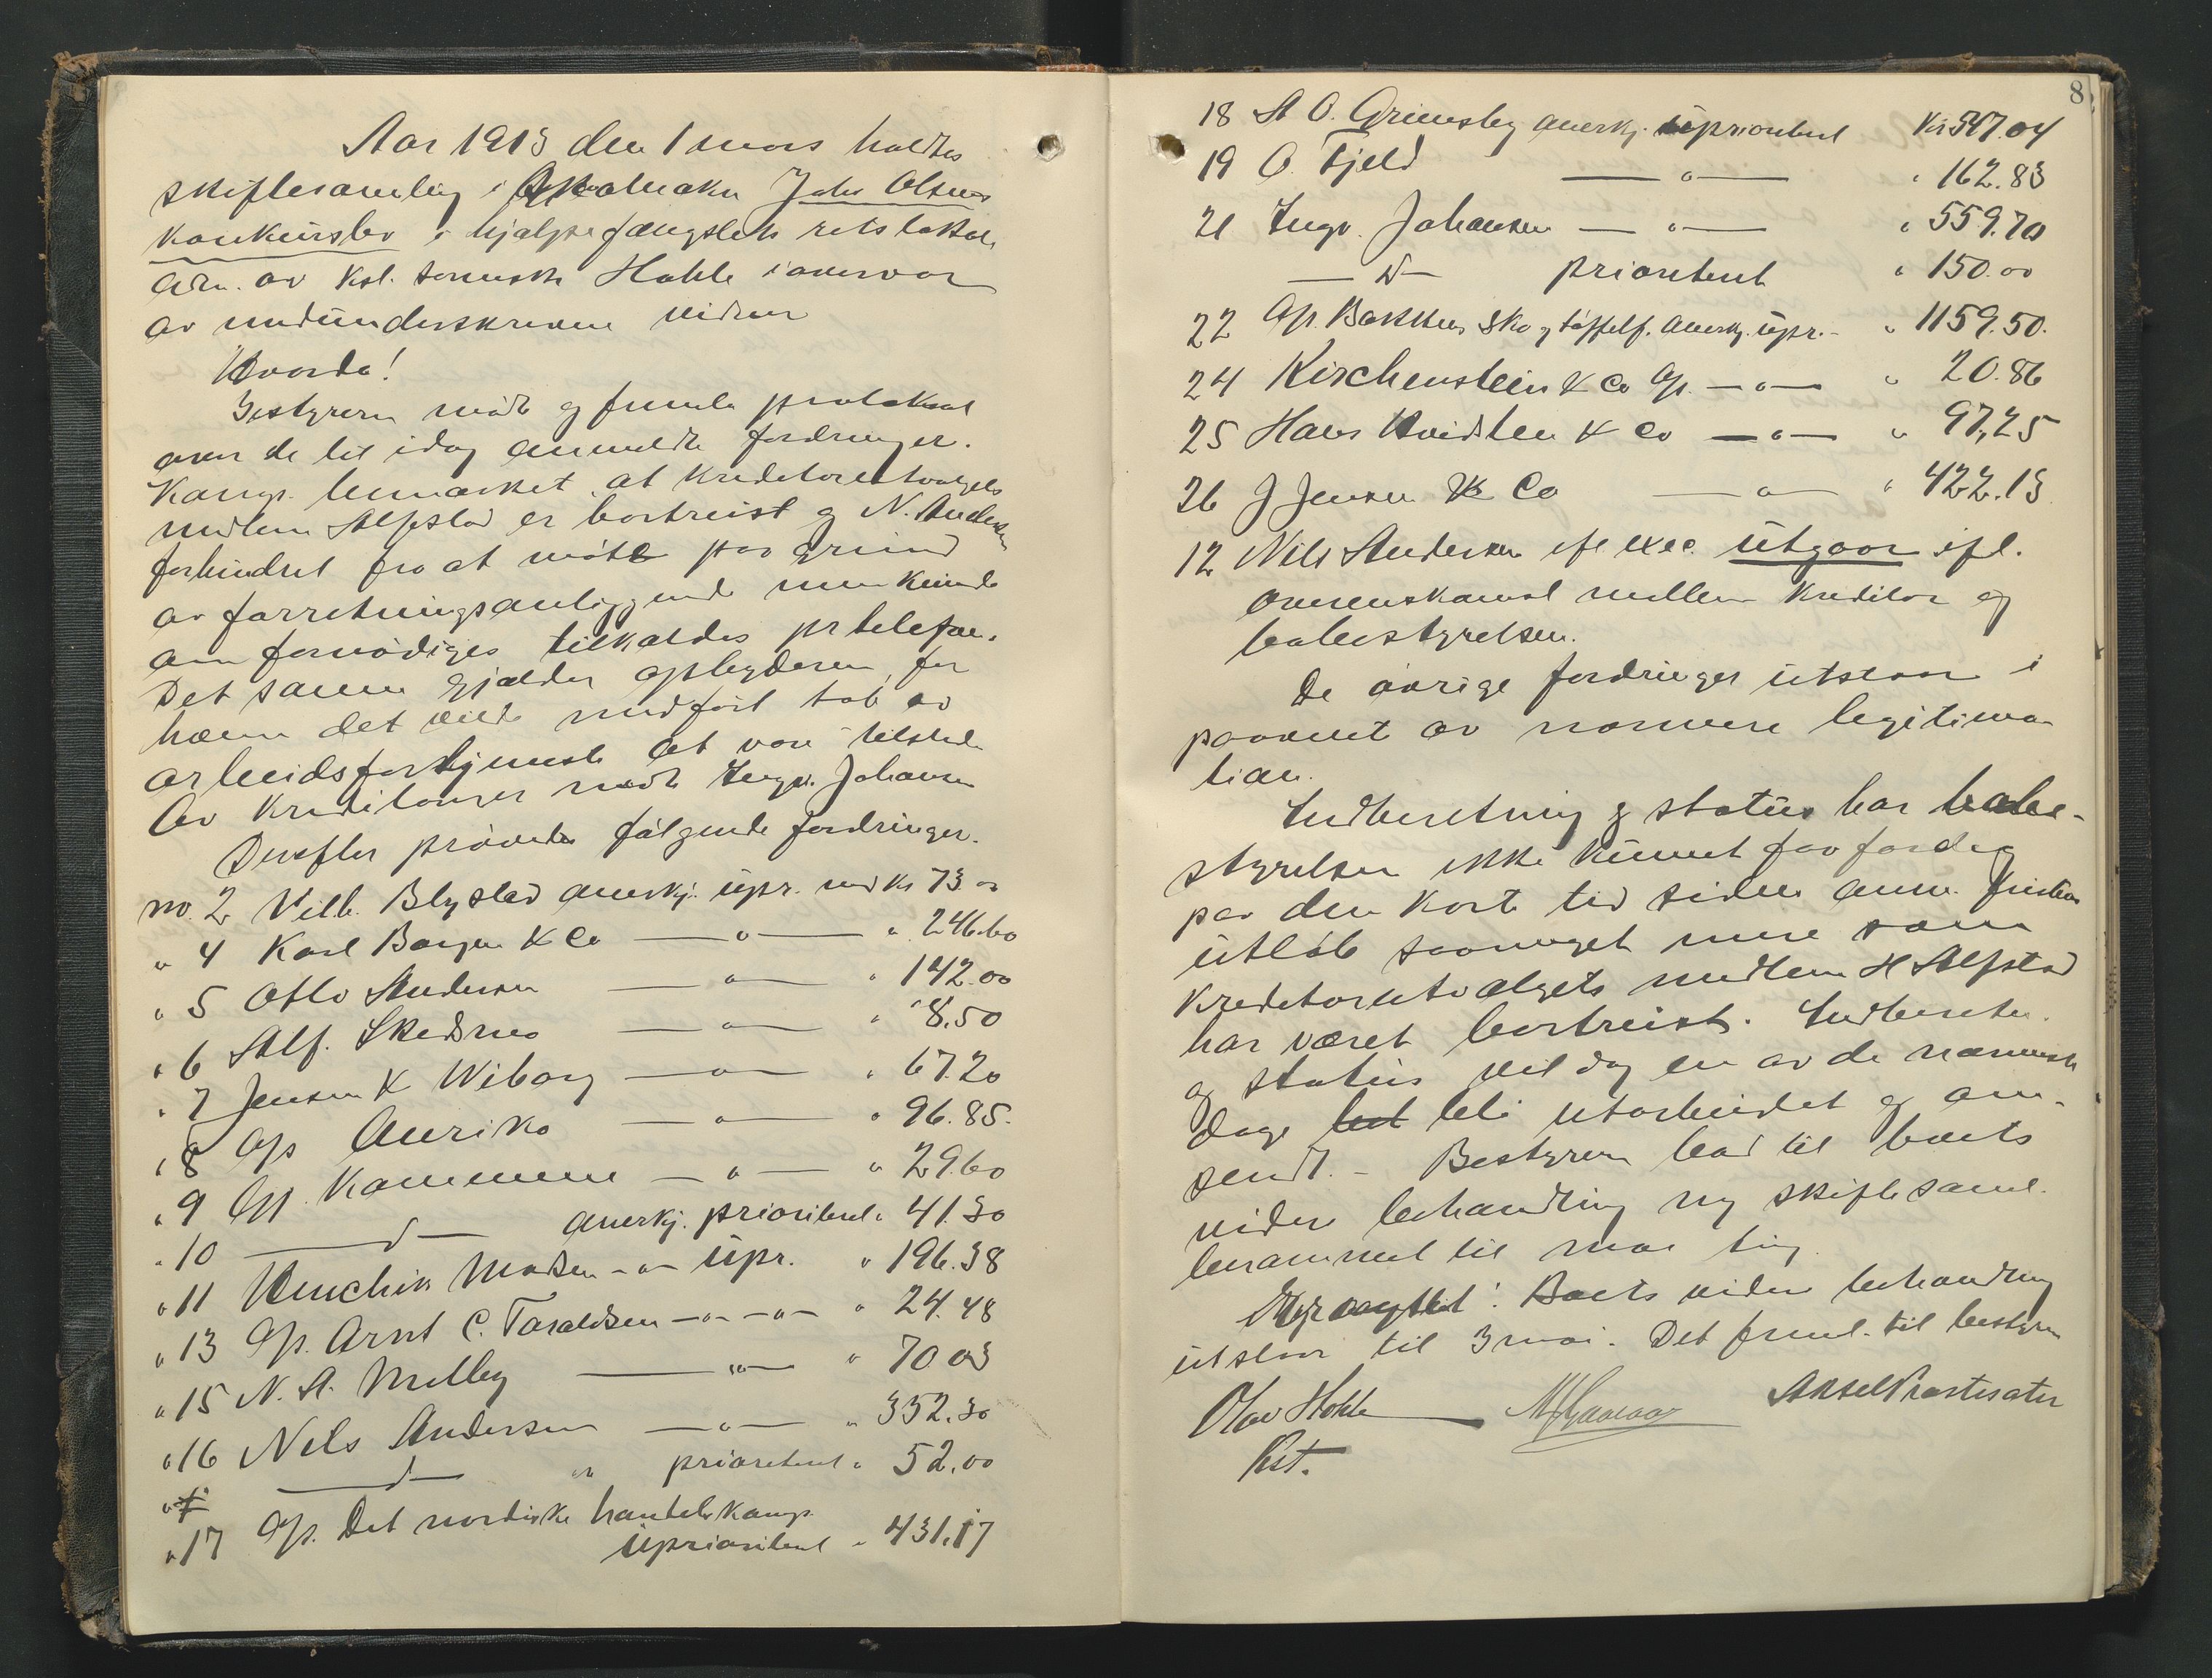 Aar 1913 den 1 mars holdtes
skiftesamling i skomaker Johs Olsens
konkursbo i hjælpefængslets retslokale
adm. av kst. sorensk. Hohle i overvær
av medunderskrevne vidner
Hvorda!
Bestyreren mødte og freml. protokol
over de til idag anmeldte fordringer.
Kongs. bemærket at kreditorutvalgets
medlem Alfstad er bortreist og N. Andersen
forhindret fra at møte paa grund
av forretningsanliggende men kunde
om fornødiges tilkaldes pr telefon.
Det samme gjælder opbyderen, for
ham det vilde medført tab av
arbeidsfortjeneste at være tilstede
Av kreditorer mødte Ingv. Johansen
Derefter prøvedes følgende fordringer.
no. 2 Vilh. Blystad anerkj. upr. med kr 73.00
" 4 Karl Borgen & Co —"— " 246.60
" 5 Otto Andersen —"— " 142.00
" 6 Alf. Skedsmo —"— " 8.50
" 7 Jensen & Wiborg —"— " 67.20
" 8 A/s Auriko —"— " 96.85.
" 9 A/s Kommune —"— " 29.60
" 10 —d— anerkj. prioritert " 41.30
" 11 Henchin Madsen -"- upr. " 196.38
" 13 A/s. Arnt C. Taraldsen -"- -"- " 24.48
" 15 N. A. Melby —"— " 70 03
" 16 Nels Andersen —"— " 332.30
—d— " prioritert " 52.00
" 17 A/s. Det nordiske handelskomp.
uprioritert " 431.17
8
18 A O. Grimsby anerkj. uprioritert Kr 347.04
19 O. Fjeld —"— " 162.83
21 Ingv. Johansen —"— " 559.70
—d— prioritert " 150.00
22 A/s. Bakkens sko og tøffelf. anerkj. upr. - " 1159.50.
24 Kirchenstein & Co A/s. —"— " 20.86
25 Hans Hvidsten & Co —"— " 97,25
26 J Jensen & Co —"— " 422.13
12 Nils Andersen ifl exec. utgaar ifl.
overenskomst mellem kreditor og
bobestyrelsen.
De øvrige fordringer utstaar i
paavent av nærmere legitima
tion.
Indberetning og status har bobe-
styrelsen ikke kunnet faa færdig
paa den korte tid siden anm. fristens
utløb saameget mere som
kreditorutvalgets medlem H Alfstad
har været bortreist. Indberetn.
og status vil dog en av de nærmeste
dage bli utarbeidet og om-
sendt. - Bestyreren bad til boets
videre behandling ny skiftesaml.
berammet til mai ting.
Eragtet: Boets videre behandling
utstaar til 3 mai. Det freml. til bestyrer
Olav Hohle Aksel Prestesæter
Kst.